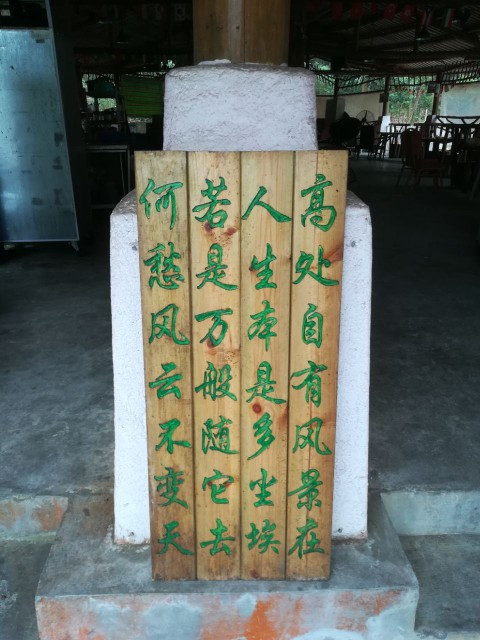 高处自有风景在
人生本是多尘埃
若是万般随它去
何愁风云不变天